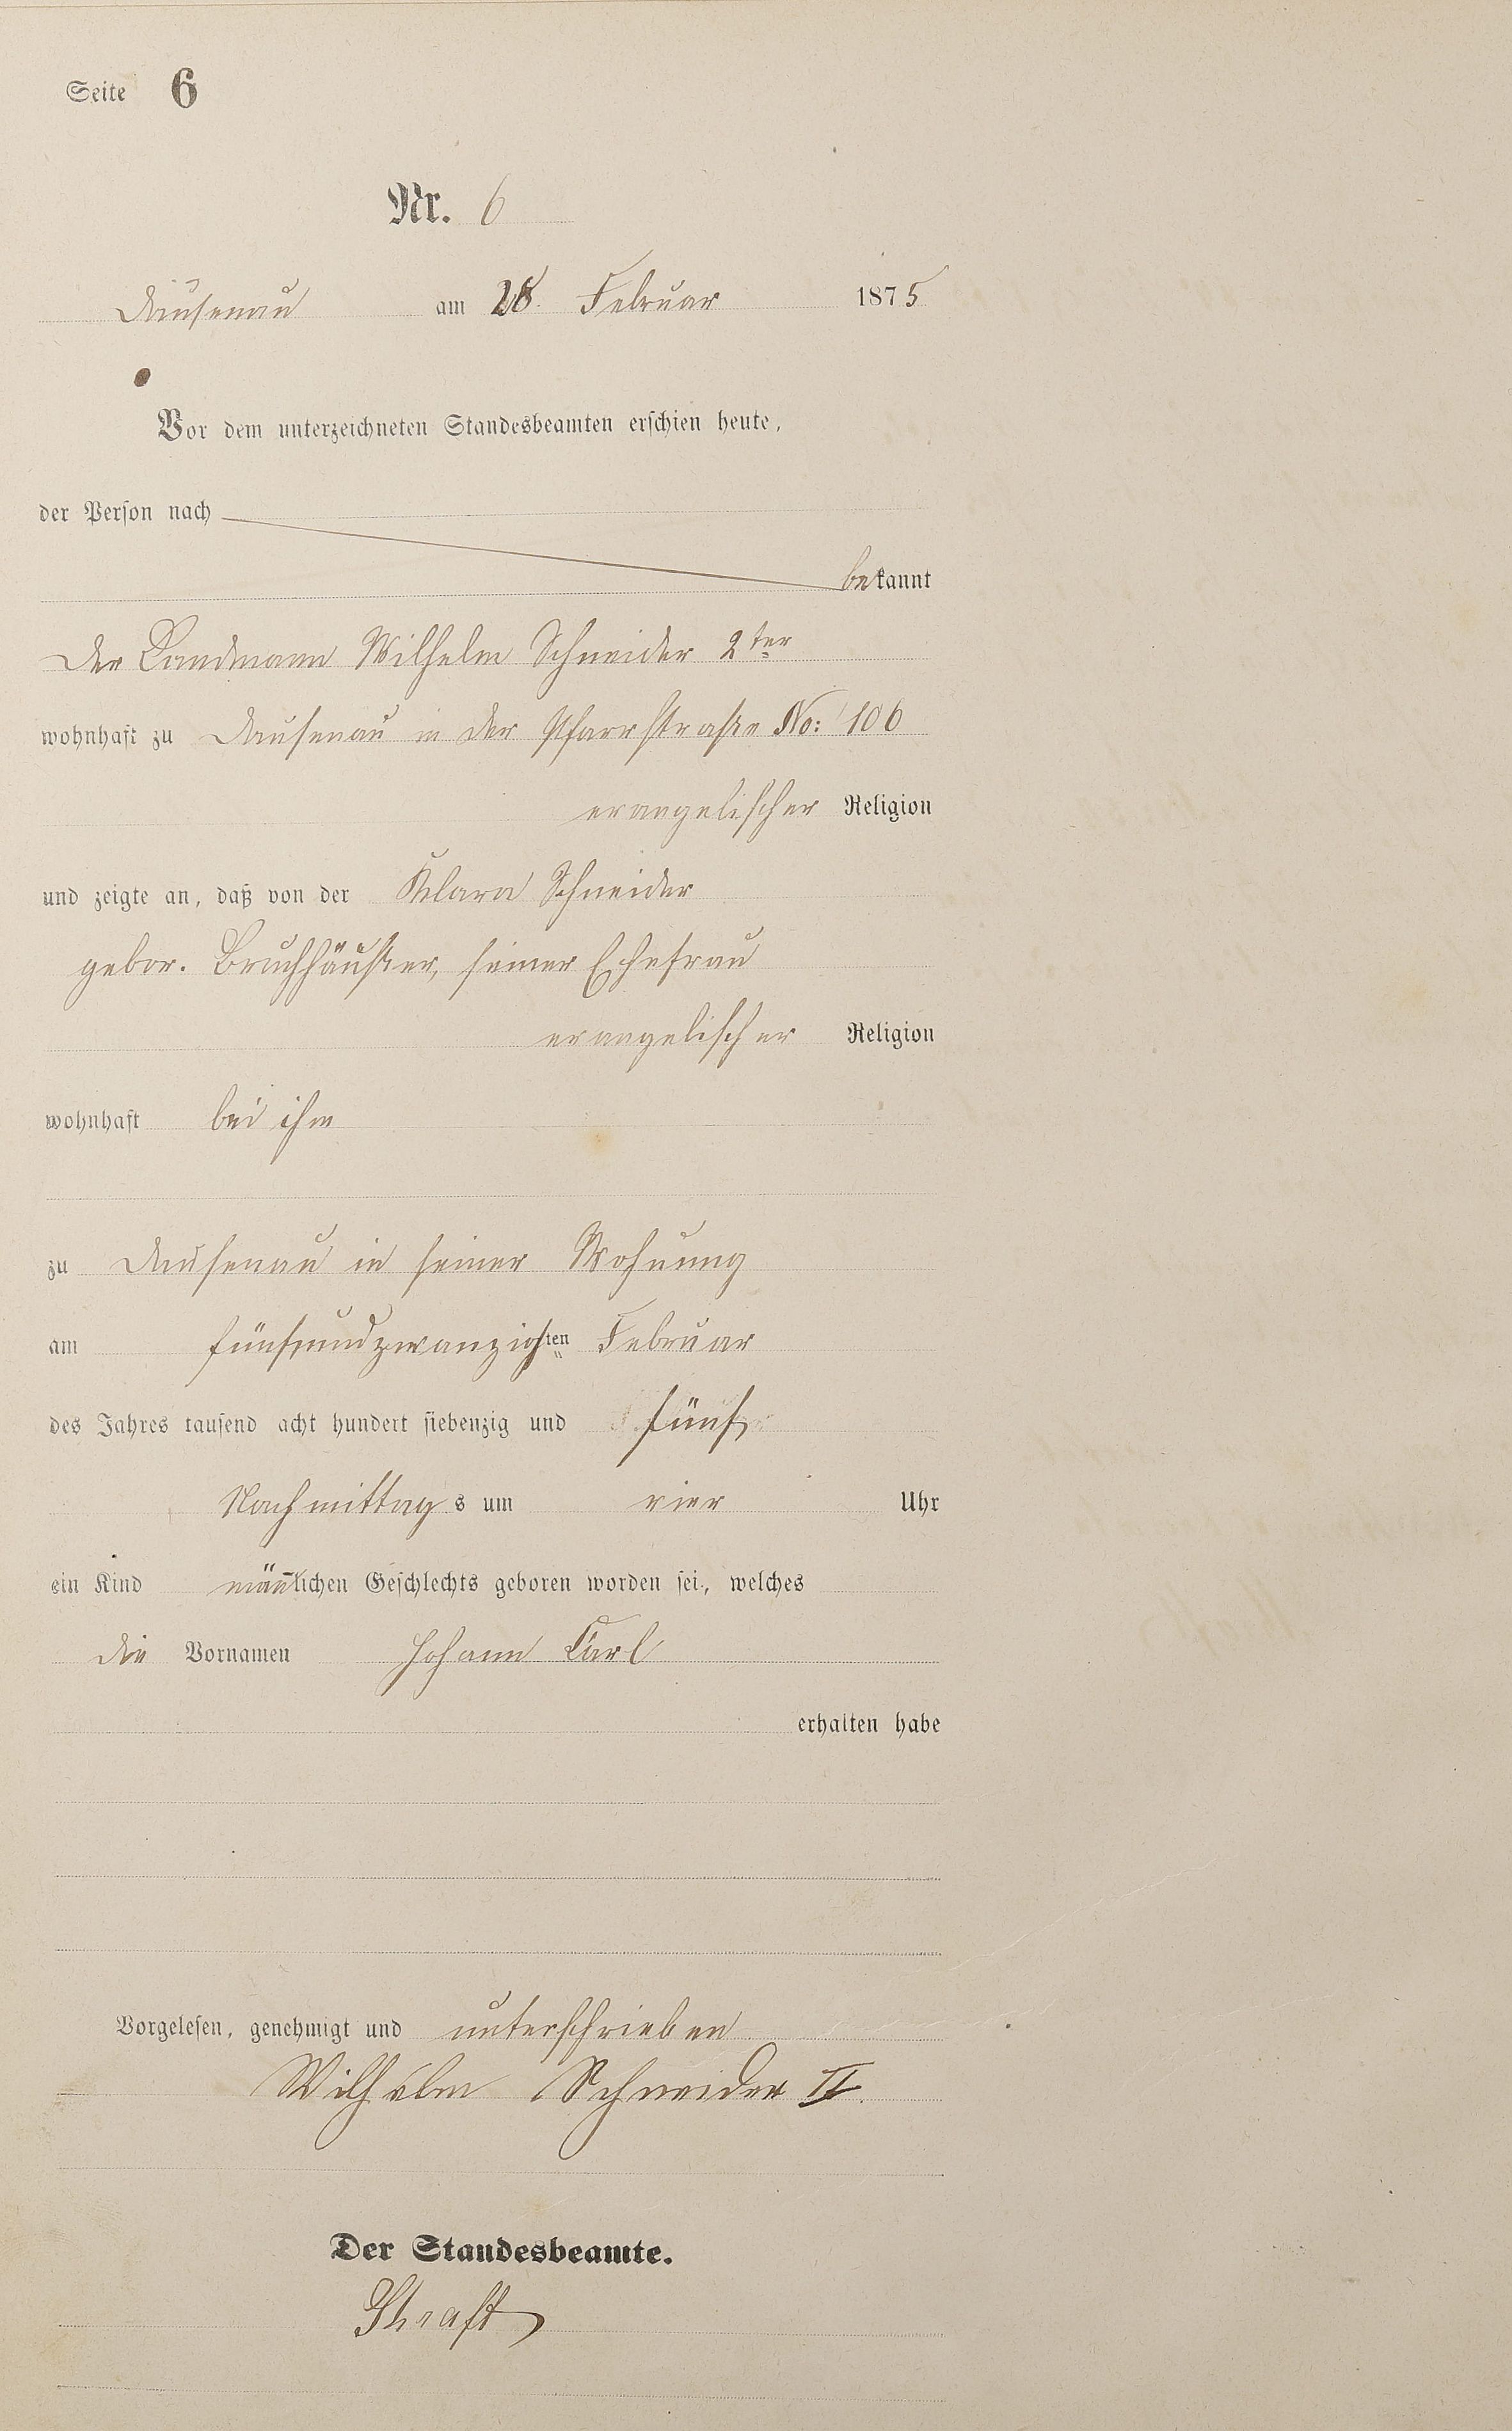 Seite 6
Nr. 6
Dausenau am 28. Februar 1875
Vor dem unterzeichneten Standesbeamten erschien heute,
der Person nach
bekannt
der Landmann Wilhelm Schneider 2ter
wohnhaft zu Dausenau in der Pfarrstraße No: 106
evangelischer Religion
und zeigte an, daß von der Klara Schneider
gebor. Bruchhäußer, seiner Ehefrau
evangelischer Religion
wohnhaft bei ihm
zu Dausenau in seiner Wohnung
am fünfundzwanzigsten Februar
des Jahres tausend acht hundert siebenzig und fünf
Nachmittags um vier Uhr
ein Kind män̄lichen Geschlechts geboren worden sei, welches
die Vornamen Johann Carl
erhalten habe
Vorgelesen, genehmigt und unterschrieben
Wilhelm Schneider II.
Der Standesbeamte.